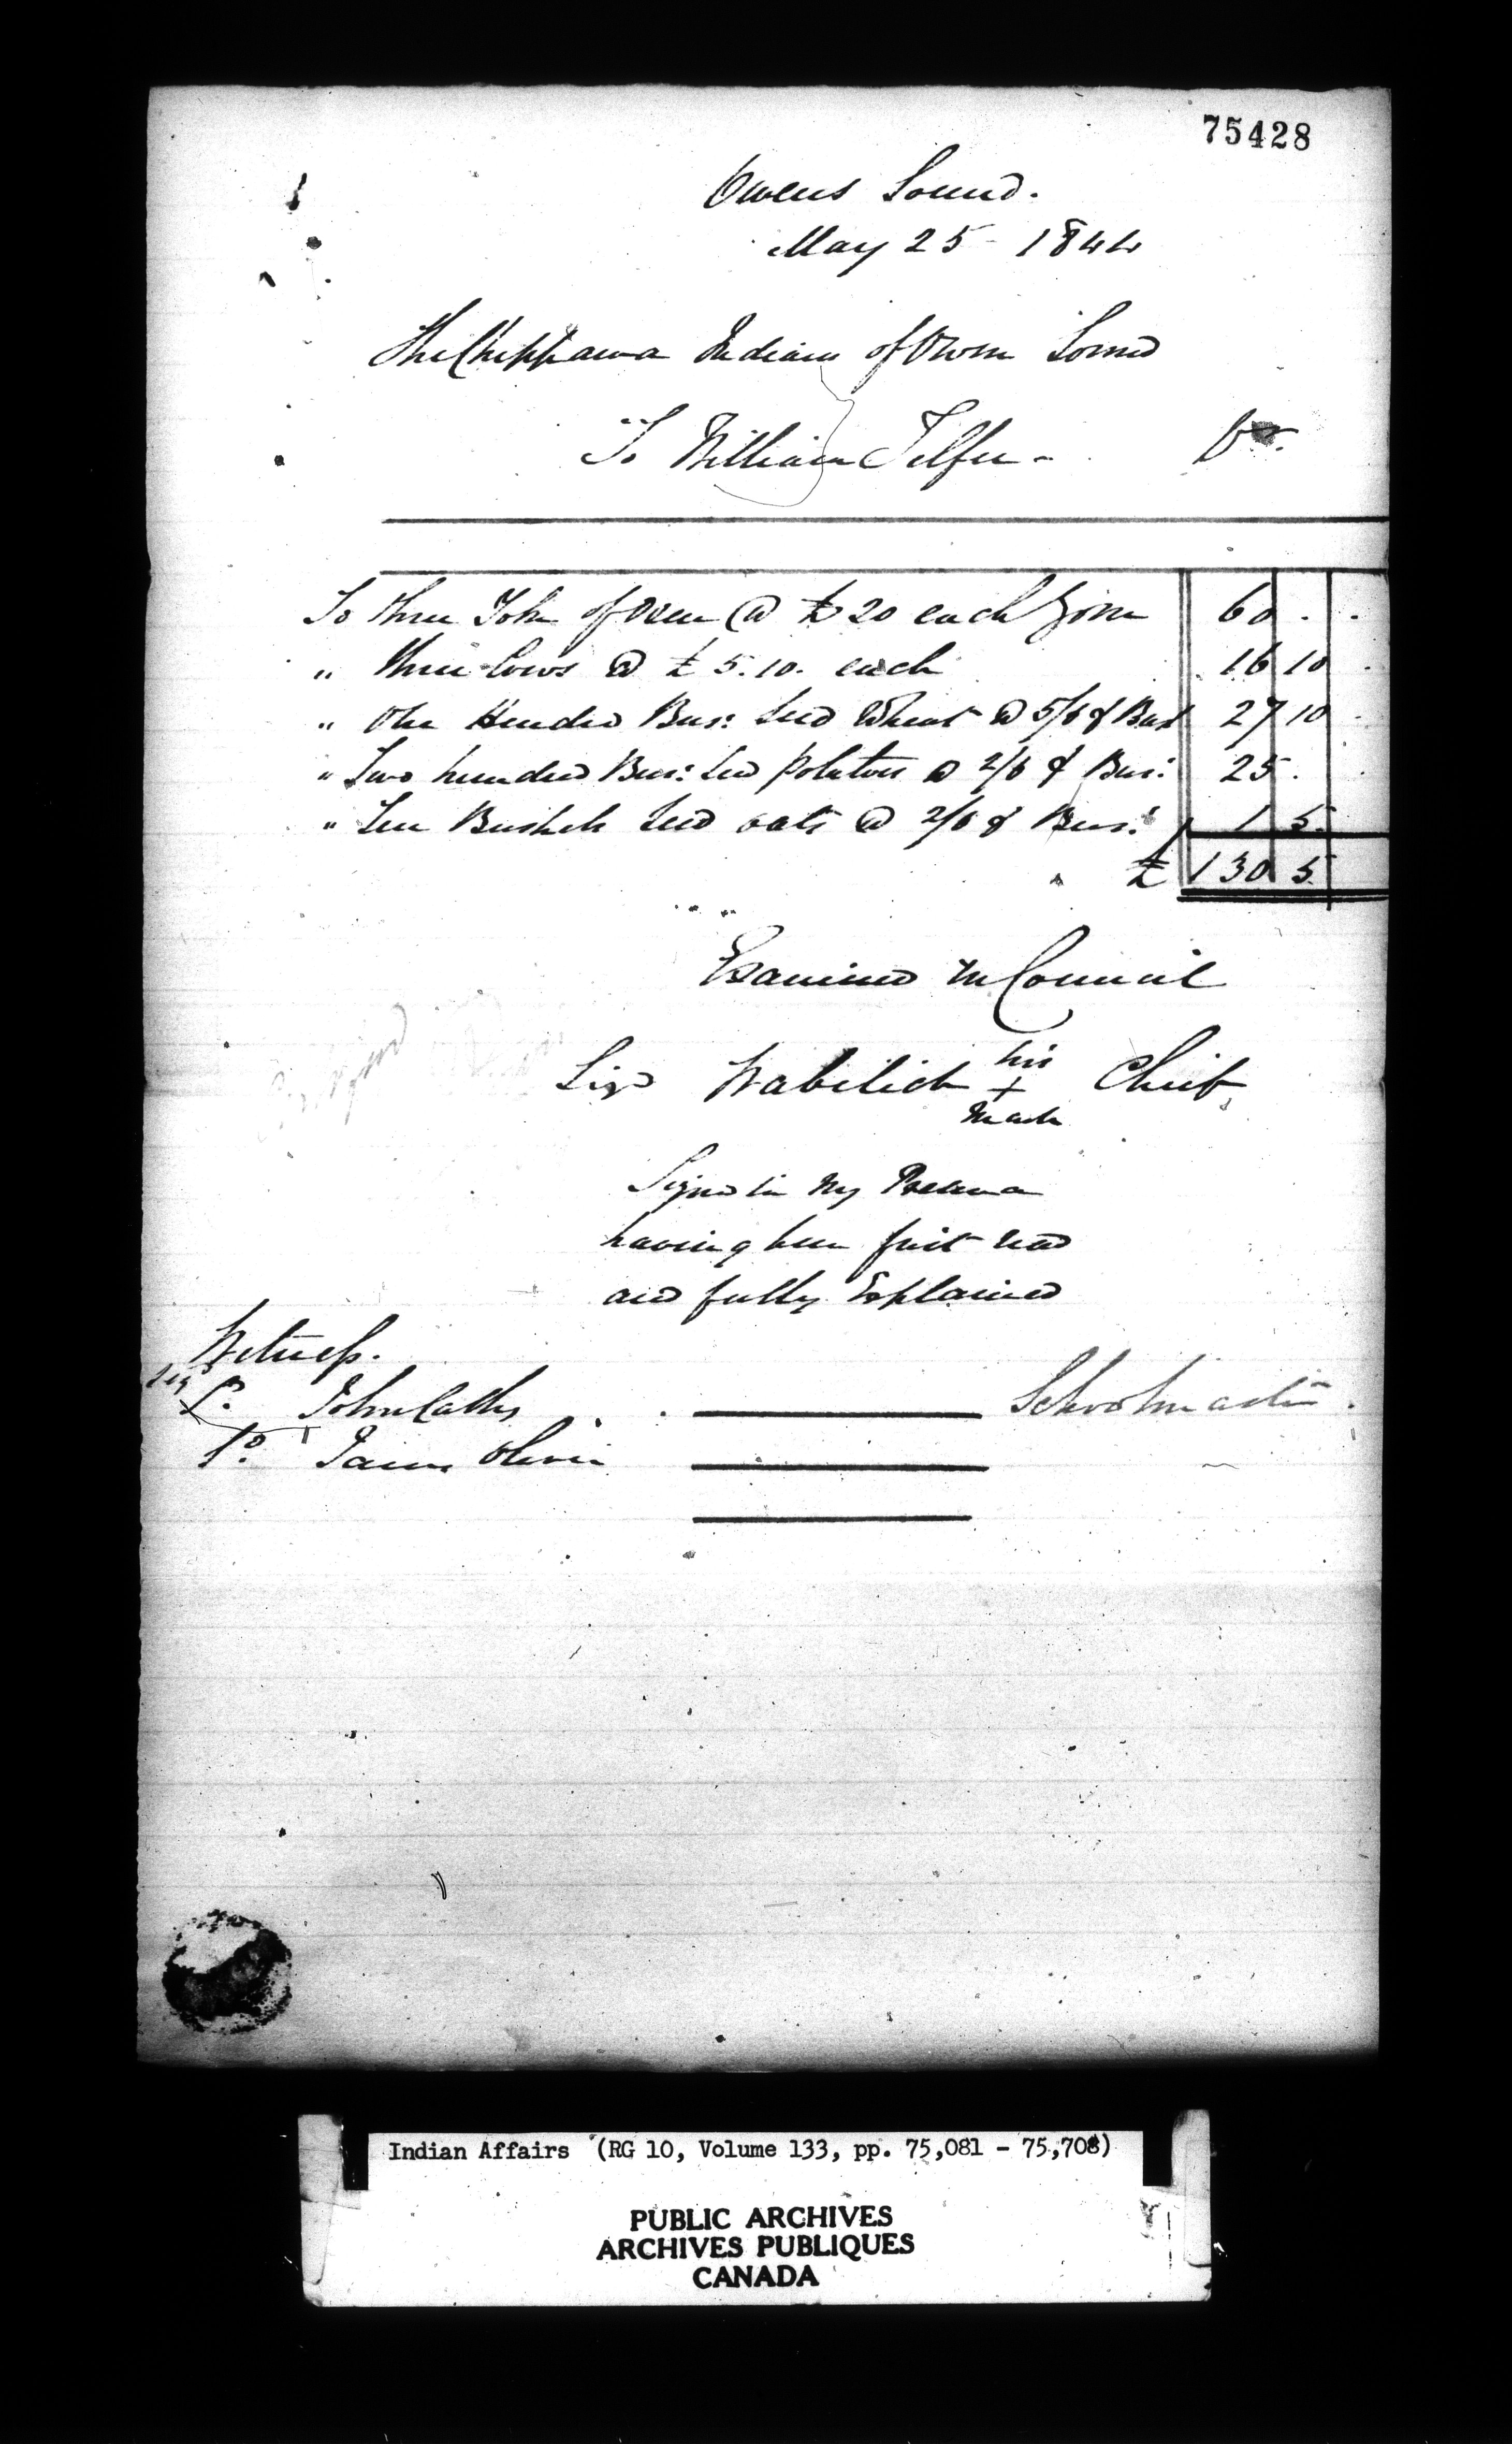 75428
Owens Sound.
May 25 - 1844
The Chippawa Indians of Owen Sound
To William Telfer - Dr.
To three Yoke of Oxen @ £20 each Yoke 60 . .
" three Cows @ £5.10. each 16 10 .
" One Hundred Bus: Seed Wheat @ 5/6 ⅌ Bus 27 10 .
" Two hundred Bus: Seed Potatoes @ 2/6 ⅌ Bus: 25 . .
" Ten Bushels Seed Oats @ 2/6 ⅌ Bus: 1 5
£ 130 5
Examined in Council
Sigd Wabetick his Chief
+
Mark
Signed in My Presence
having been first read
and fully Explained
Witness.
Sigd
Do. John Cathy Schoolmaster.
Do. James Oliver
Indian Affairs (RG 10, Volume 133, pp. 75,081 - 75,708)
PUBLIC ARCHIVES
ARCHIVES PUBLIQUES
CANADA